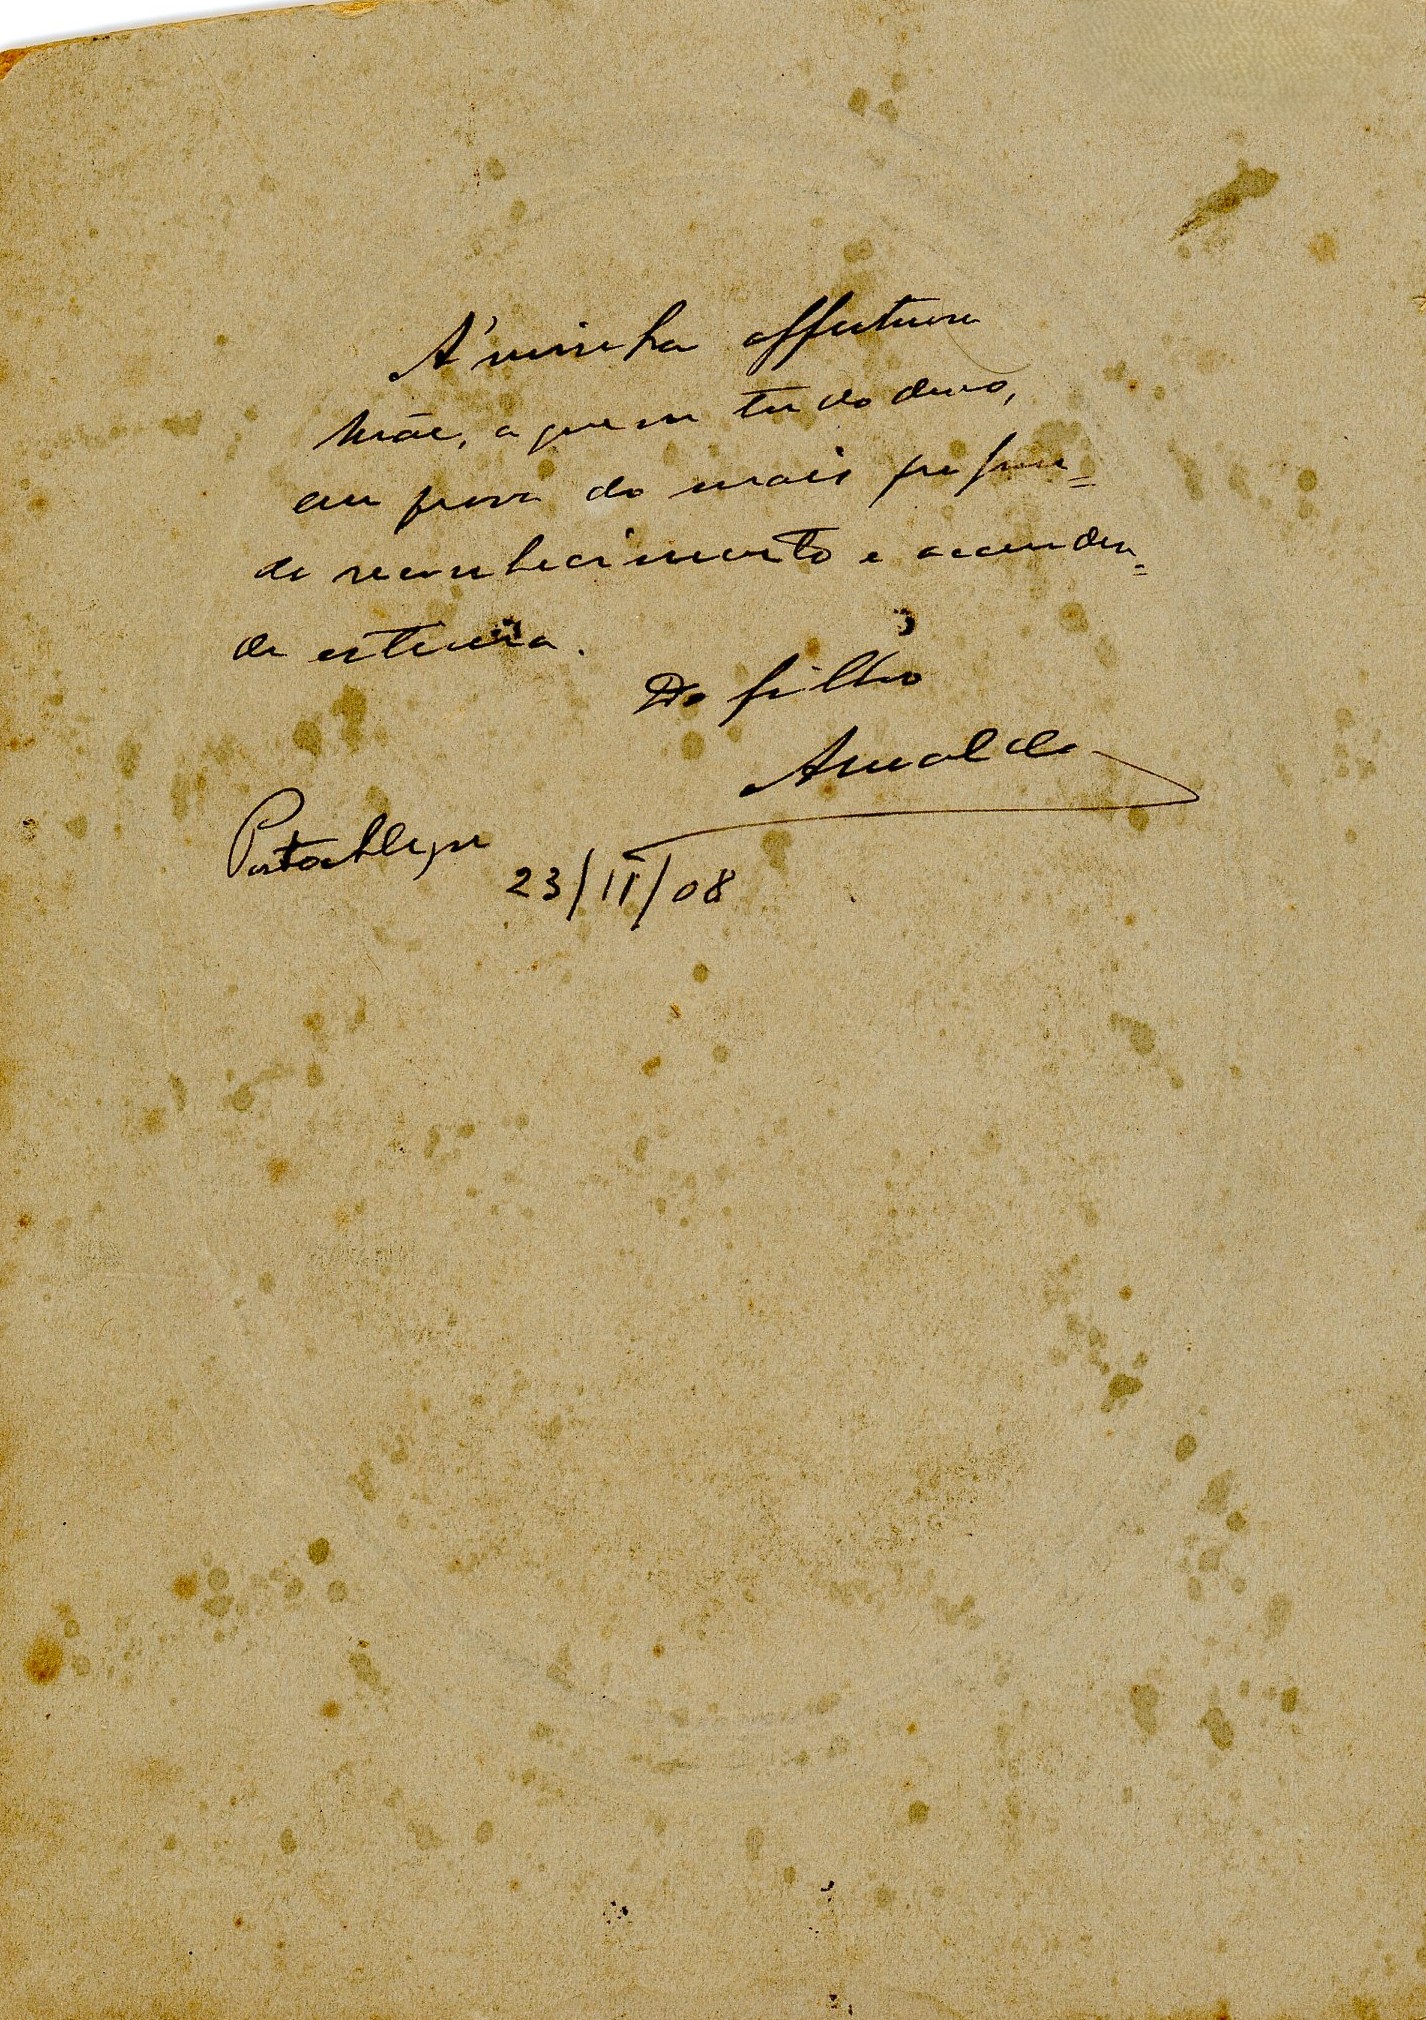 A' minha affectuosa
Mãe, a quem tudo devo,
em prova do mais profun=
do reconhecimento e accendra=
da estima.
Do filho
Arnaldo
Porto Alegre
23/II/08